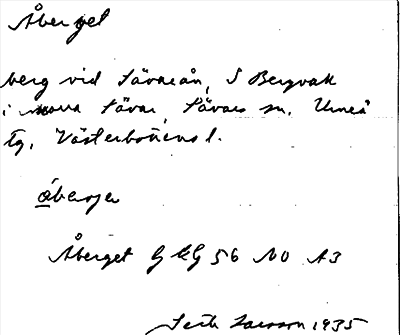 Åberget
berg vid Sävarån, S Bergvak
i norra Sävar, Sävars sn. Umeå
tg, Västerbottens l.
åbærje
Åberget GEG 56 NO A3
Seth Larsson 1935